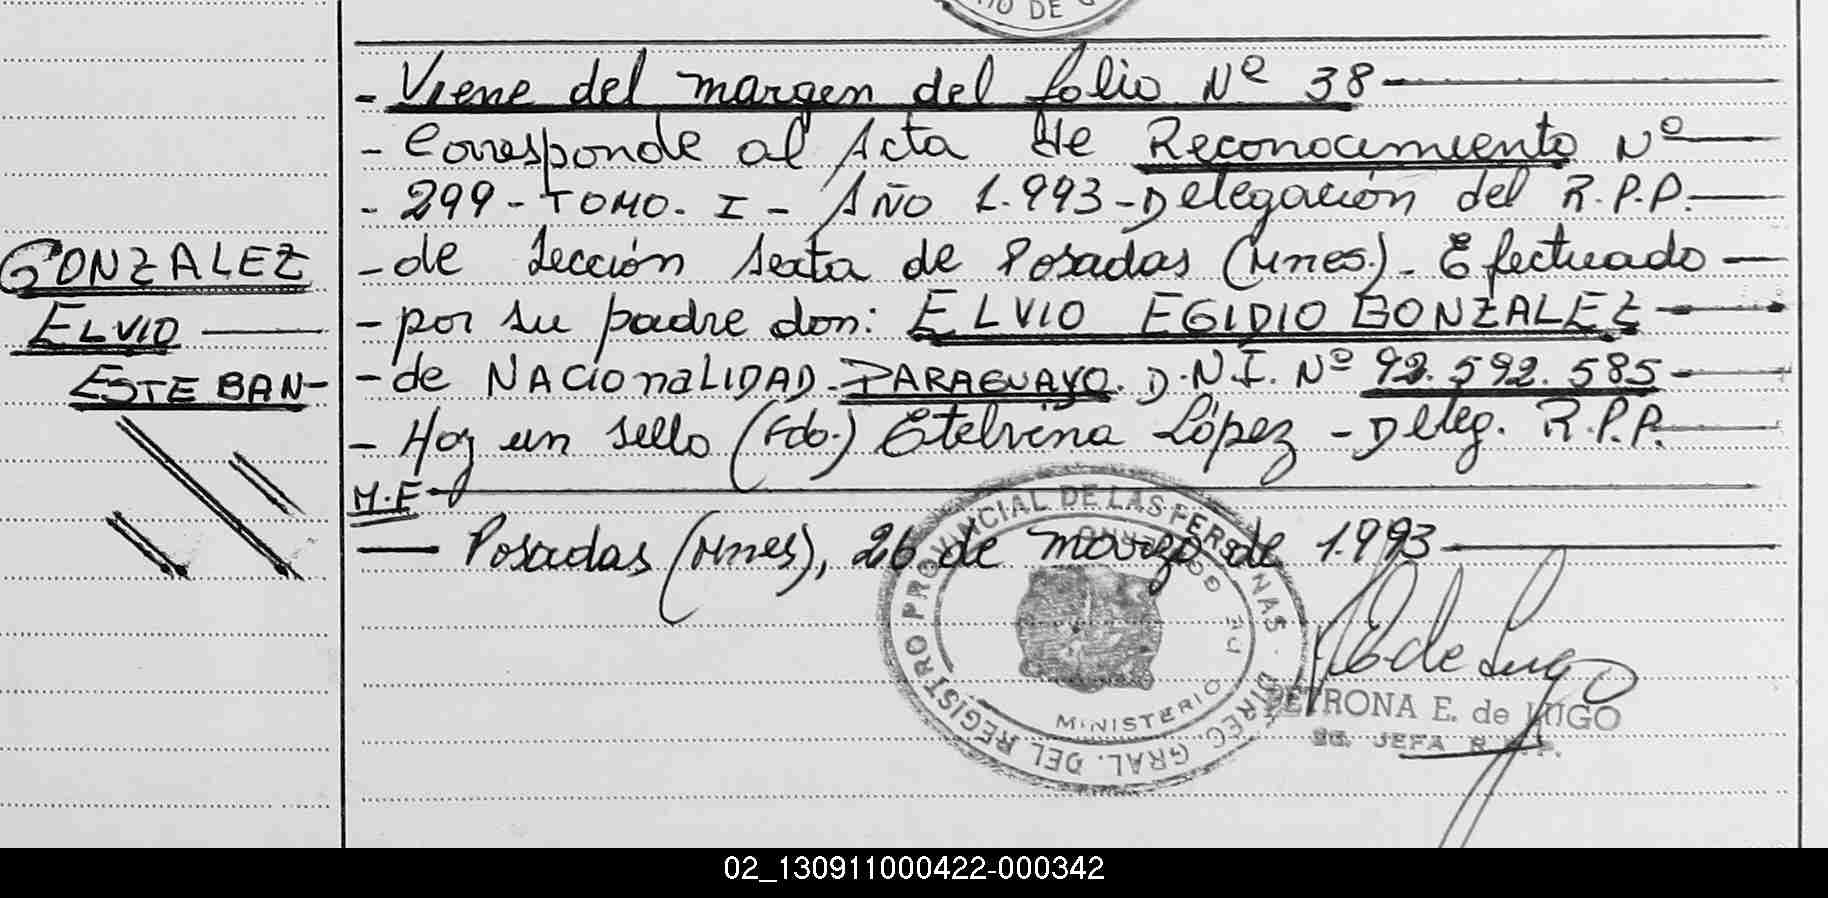 - Viene del margen del folio Nº 38
- Corresponde al Acta de Reconocimiento Nº
- 299 - TOMO. I - AÑO 1.993 - Delegación del R.P.P.
- de Sección Sexta de Posadas (Mnes.) - Efectuado
GONZALEZ
ELVIO
ESTEBAN-
- por su padre don: ELVIO EGIDIO GONZALEZ
- de NACIONALIDAD - PARAGUAYO. D.N.I. Nº 92.592.585
- Hoy un sello (Fdo.) Etelvina López - Deleg. R.P.P.
M.E
Posadas (Mnes), 26 de marzo de 1.993
DIREC. GRAL. DEL REGISTRO PROVINCIAL DE LAS PERSONAS
MINISTERIO DE GOBIERNO
P E de Lugo
PETRONA E. de LUGO
JEFA R.P.P.
02_130911000422-000342